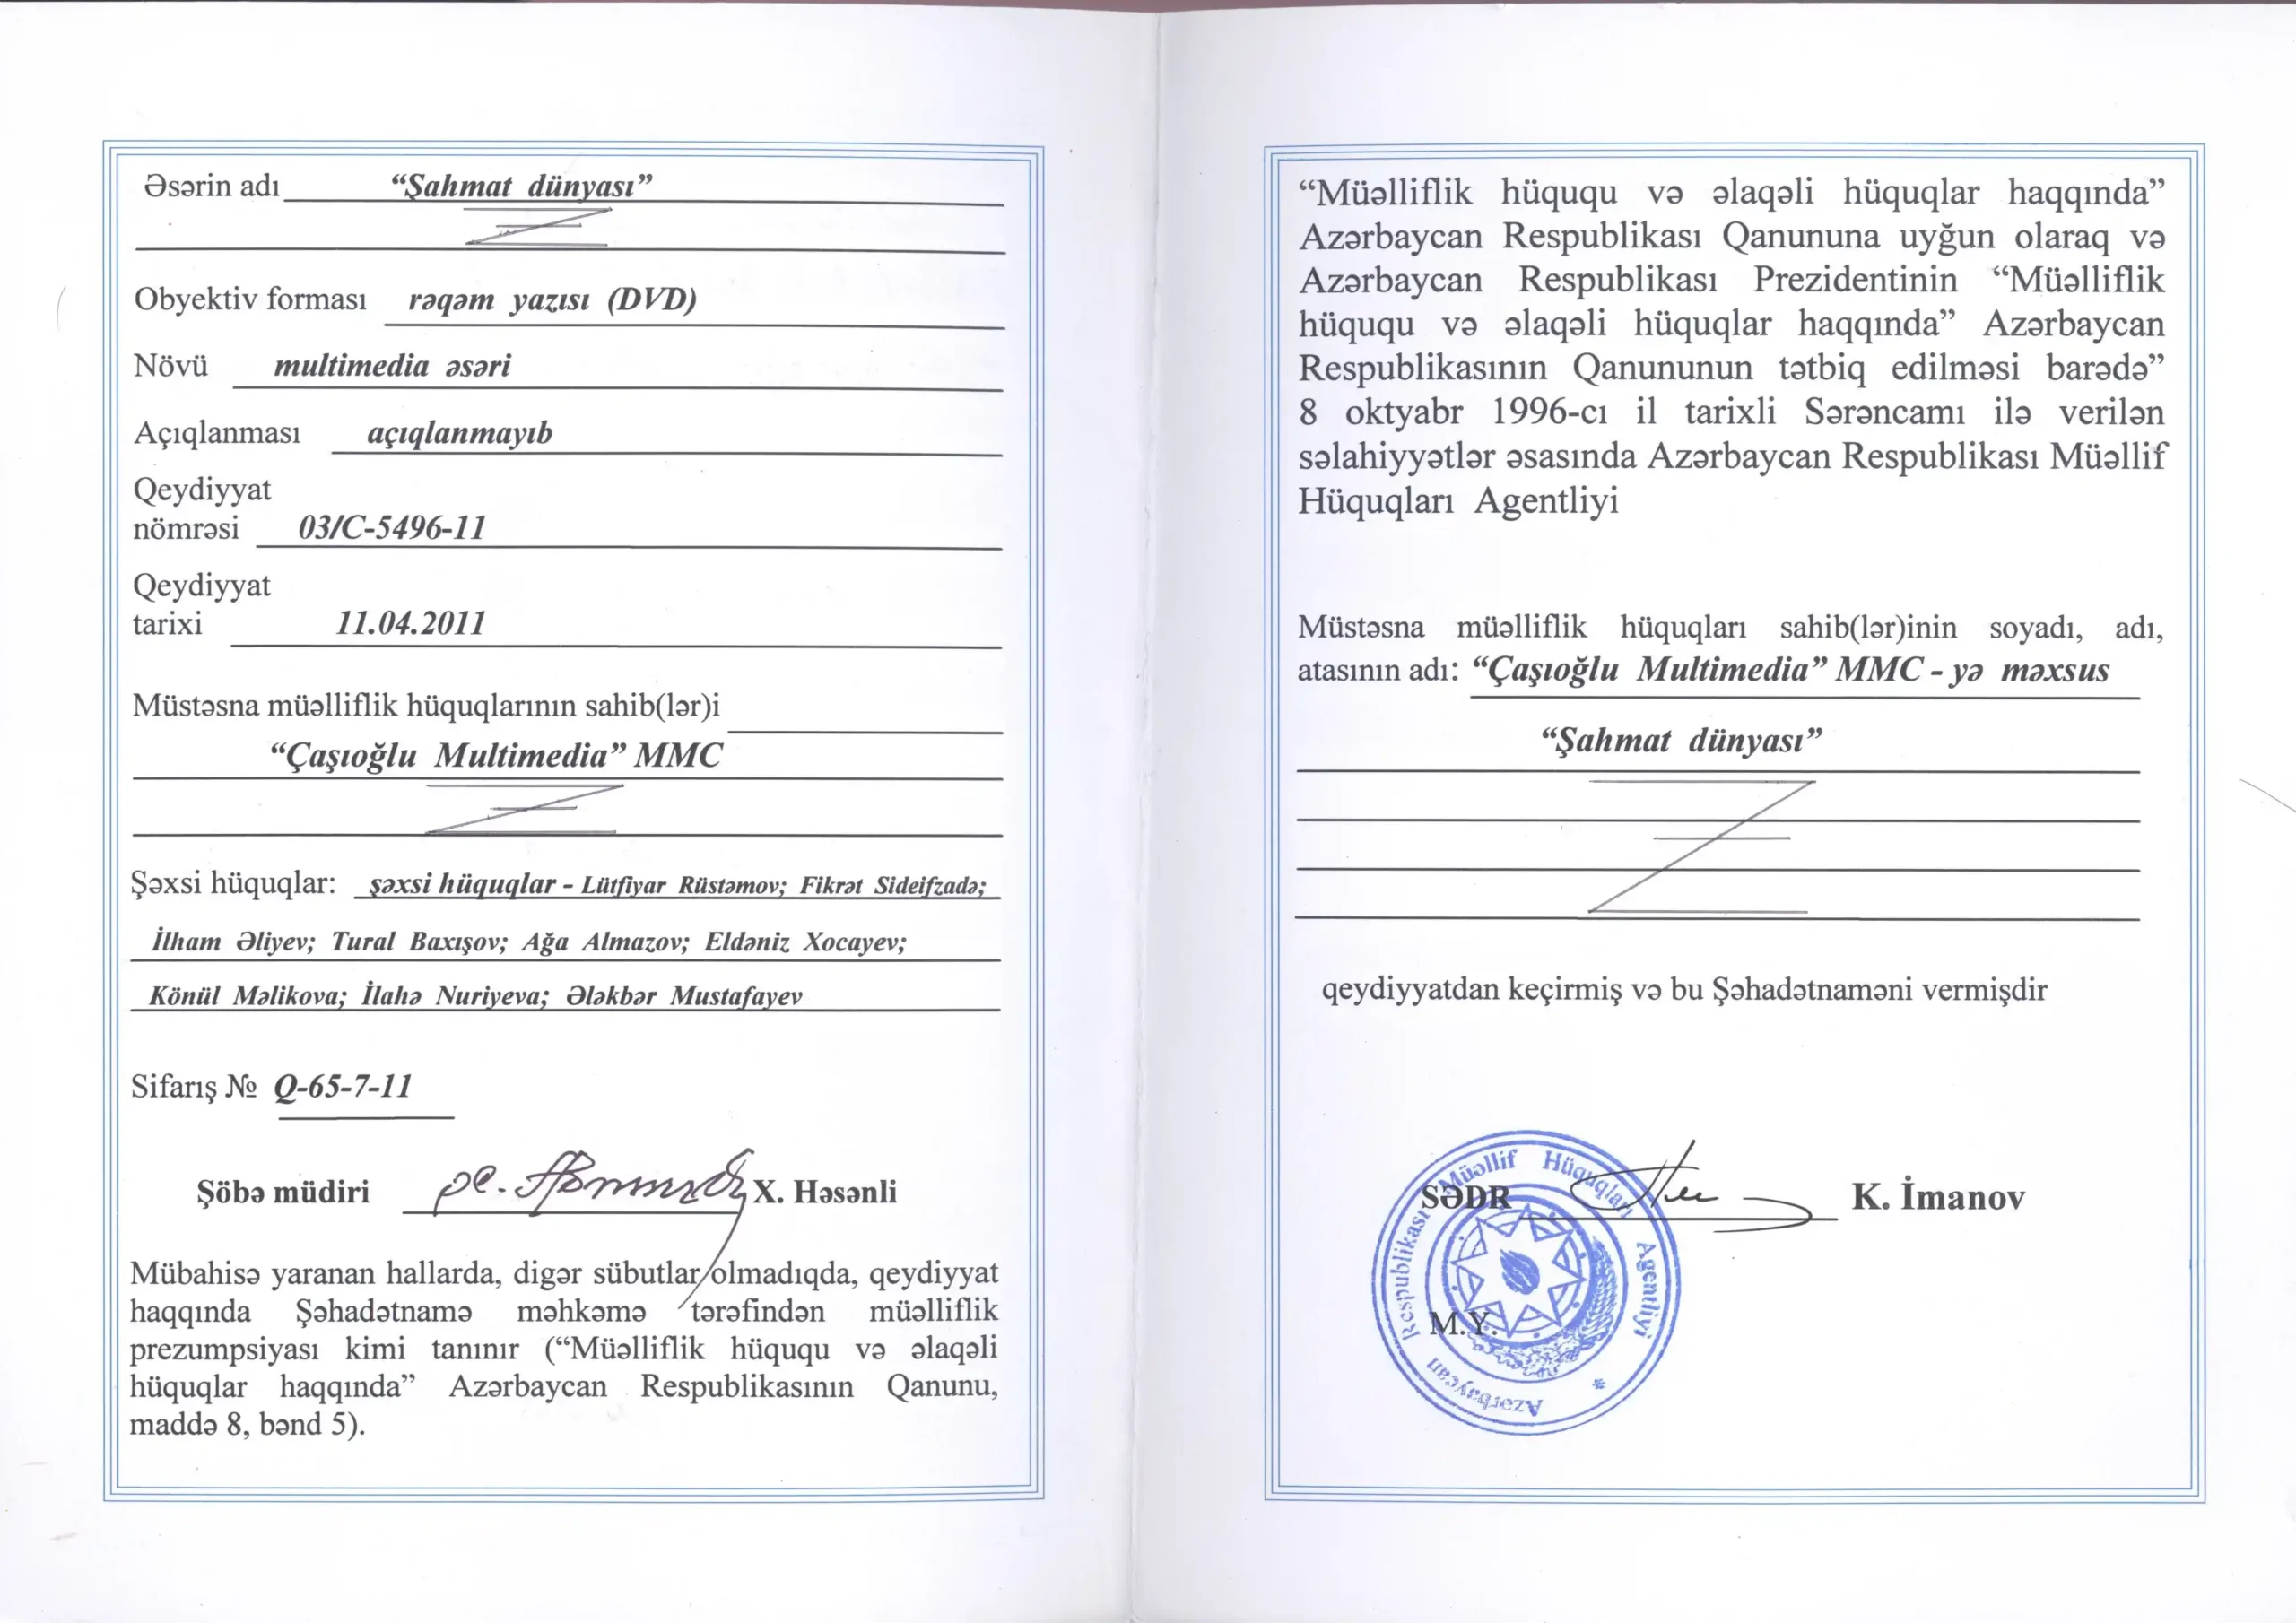 Əsərin adı “Şahmat dünyası”
Obyektiv forması rəqəm yazısı (DVD)
Növü multimedia əsəri
Açıqlanması açıqlanmayıb
Qeydiyyat
nömrəsi 03/C-5496-11
Qeydiyyat
tarixi 11.04.2011
Müstəsna müəlliflik hüquqlarının sahib(lər)i
“Çaşıoğlu Multimedia” MMC
Şəxsi hüquqlar: şəxsi hüquqlar - Lütfiyar Rüstəmov; Fikrət Sideifzadə;
İlham Əliyev; Tural Baxışov; Ağa Almazov; Eldəniz Xocayev;
Könül Məlikova; İlahə Nuriyeva; Ələkbər Mustafayev
Sifarış № Q-65-7-11
Şöbə müdiri X. Həsənli
Mübahisə yaranan hallarda, digər sübutlar olmadıqda, qeydiyyat
haqqında Şəhadətnamə məhkəmə tərəfindən müəlliflik
prezumpsiyası kimi tanınır (“Müəlliflik hüququ və əlaqəli
hüquqlar haqqında” Azərbaycan Respublikasının Qanunu,
maddə 8, bənd 5).
“Müəlliflik hüququ və əlaqəli hüquqlar haqqında”
Azərbaycan Respublikası Qanununa uyğun olaraq və
Azərbaycan Respublikası Prezidentinin “Müəlliflik
hüququ və əlaqəli hüquqlar haqqında” Azərbaycan
Respublikasının Qanununun tətbiq edilməsi barədə”
8 oktyabr 1996-cı il tarixli Sərəncamı ilə verilən
səlahiyyətlər əsasında Azərbaycan Respublikası Müəllif
Hüquqları Agentliyi
Müstəsna müəlliflik hüquqları sahib(lər)inin soyadı, adı,
atasının adı: “Çaşıoğlu Multimedia” MMC - yə məxsus
“Şahmat dünyası”
qeydiyyatdan keçirmiş və bu Şəhadətnaməni vermişdir
SƏDR K. İmanov
M.Y.
Azərbaycan Respublikası Müəllif Hüquqları Agentliyi *